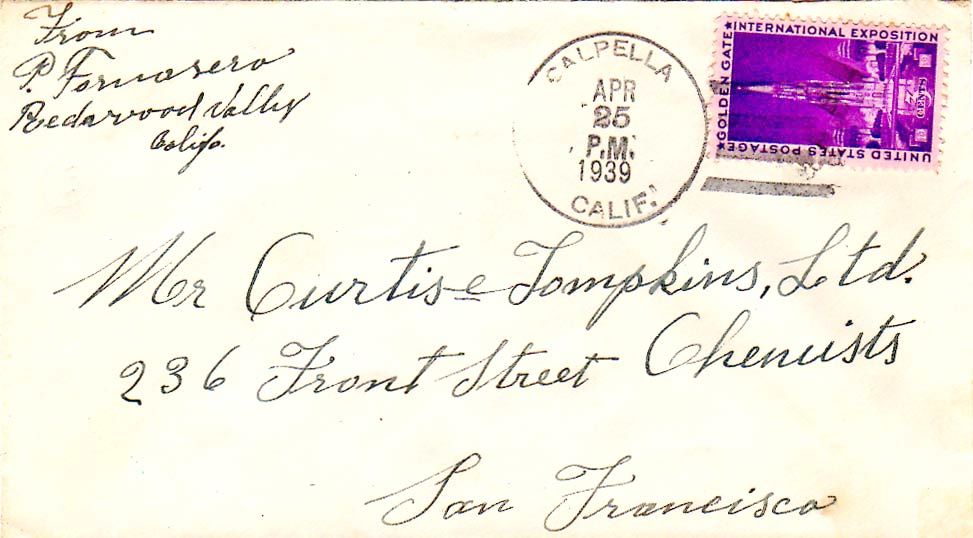 From
P. Fornasero
Redarwood Valley
Calif.
CALPELLA
APR
25
P.M.
1939
CALIF.
GOLDEN GATE INTERNATIONAL EXPOSITION
3 CENTS 3
UNITED STATES POSTAGE
Mr Curtis e Tompkins, Ltd.
236 Front Street Chemists
San Francisco